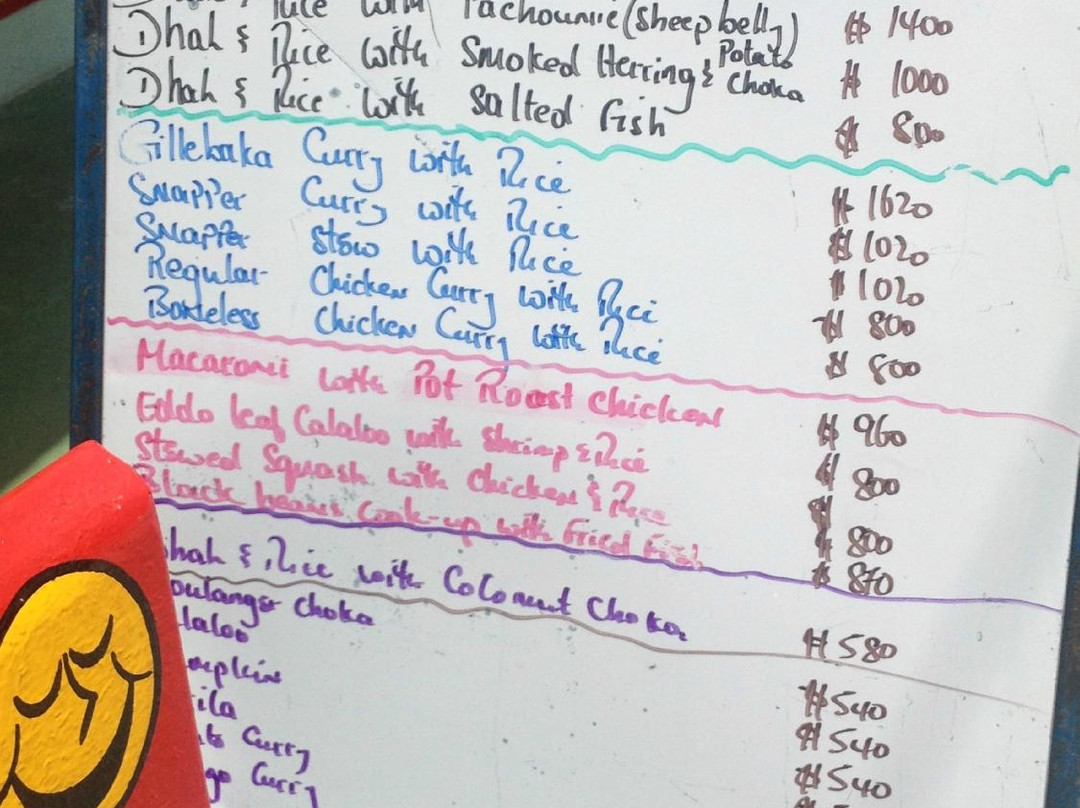 Rice with Pachoumie (sheep belly) $ 1400
Dhah & Rice with Smoked Herring & Potato Choka $ 1000
Dhah & Rice with Salted fish $ 800
Gillebaka Curry with Rice $ 1620
Snapper Curry with Rice $ 1020
Snapper Stew with Rice $ 1020
Regular Chicken Curry with Rice $ 800
Boneless Chicken Curry with Rice $ 800
Macaroni with Pot Roast Chicken $ 960
Eddo leaf Calaloo with Shrimp & Rice $ 800
Stewed Squash with Chicken & Rice $ 800
Black beans Cook-up with Fried Fish $ 870
hah & Rice with Coconut Choka $ 580
oulanger Choka $ 540
laloo $ 540
mpkin $ 540
ila
Curry
go Curry